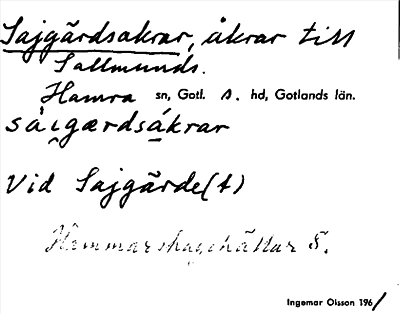 Sajgårdsakrar, åkrar till
Sallmunds.
Hamra sn, Gotl. S. hd, Gotlands län.
sàigærdsákrar
Vid Sajgårde(t)
Hemmarshagehällar S.
Ingemar Olsson 1961